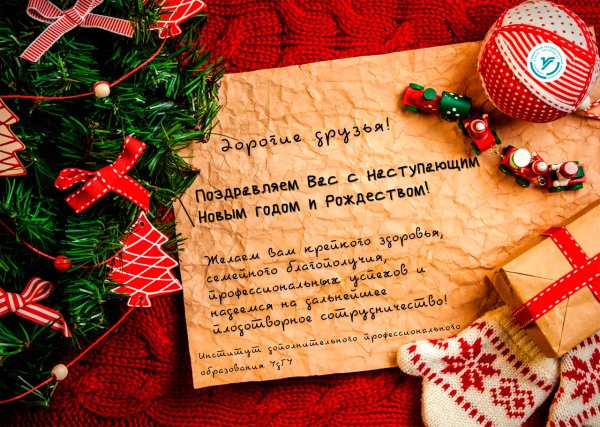 Дорогие друзья!
Поздравляем Вас с наступающим
Новым годом и Рождеством!
Желаем вам крепкого здоровья,
семейного благополучия,
профессиональных успехов и
надеемся на дальнейшее
плодотворное сотрудничество!
Институт дополнительного профессионального
образования ЧдГУ